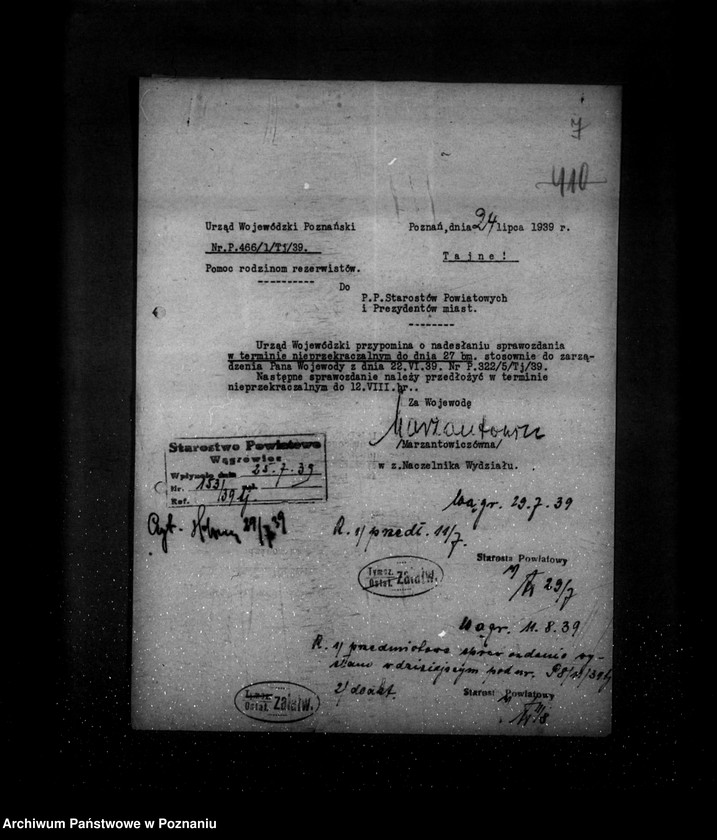 7
410
Urząd Wojewódzki Poznański
Poznań,dnia 24 lipca 1939 r.
Nr.P.466/1/Tj/39.
Tajne!
Pomoc rodzinom rezerwistów.
----------
Do
P.P.Starostów Powiatowych
i Prezydentów miast.
--------
Urząd Wojewódzki przypomina o nadesłaniu sprawozdania
w terminie nieprzekraczalnym do dnia 27 bm. stosownie do zarzą-
dzenia Pana Wojewody z dnia 22.VI.39. Nr P.322/5/Tj/39.
Następne sprawozdanie należy przedłożyć w terminie
nieprzekraczalnym do 12.VIII.br..
Za Wojewodę
/Marzantowiczówna/
w z.Naczelnika Wydziału.
Starostwo Powiatowe
Wągrowiec
Wpłynęło dnia 25.7.39
Nr. 1531 zał.
Ref. /39 tj.
Wągr. 29.7.39
R. 1/ przedł. 11/7.
Starosta Powiatowy
29/7
Tymcz.
Ostat. Załatw.
Wągr. 11.8.39
R. 1/ przedmiotowe sprawozdanie wy-
słano w dzisiejszym pod nr.
2/ do akt.
Starosta Powiatowy
11/8
Tymcz.
Ostat. Załatw.
Archiwum Państwowe w Poznaniu